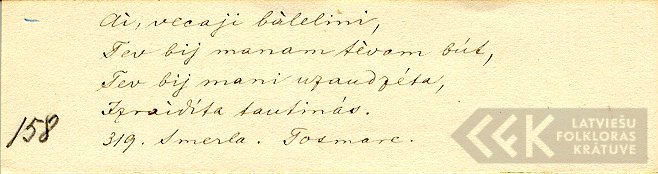 Ai, vecaji bàlelini,
Tev bij manam tèvam bút,
Tev bij mani uzaudzéta,
Izraidíta tautinás.
158
319. Smerla. Tosmare.
LATVIEŠU
FOLKLORAS
KRĀTUVE